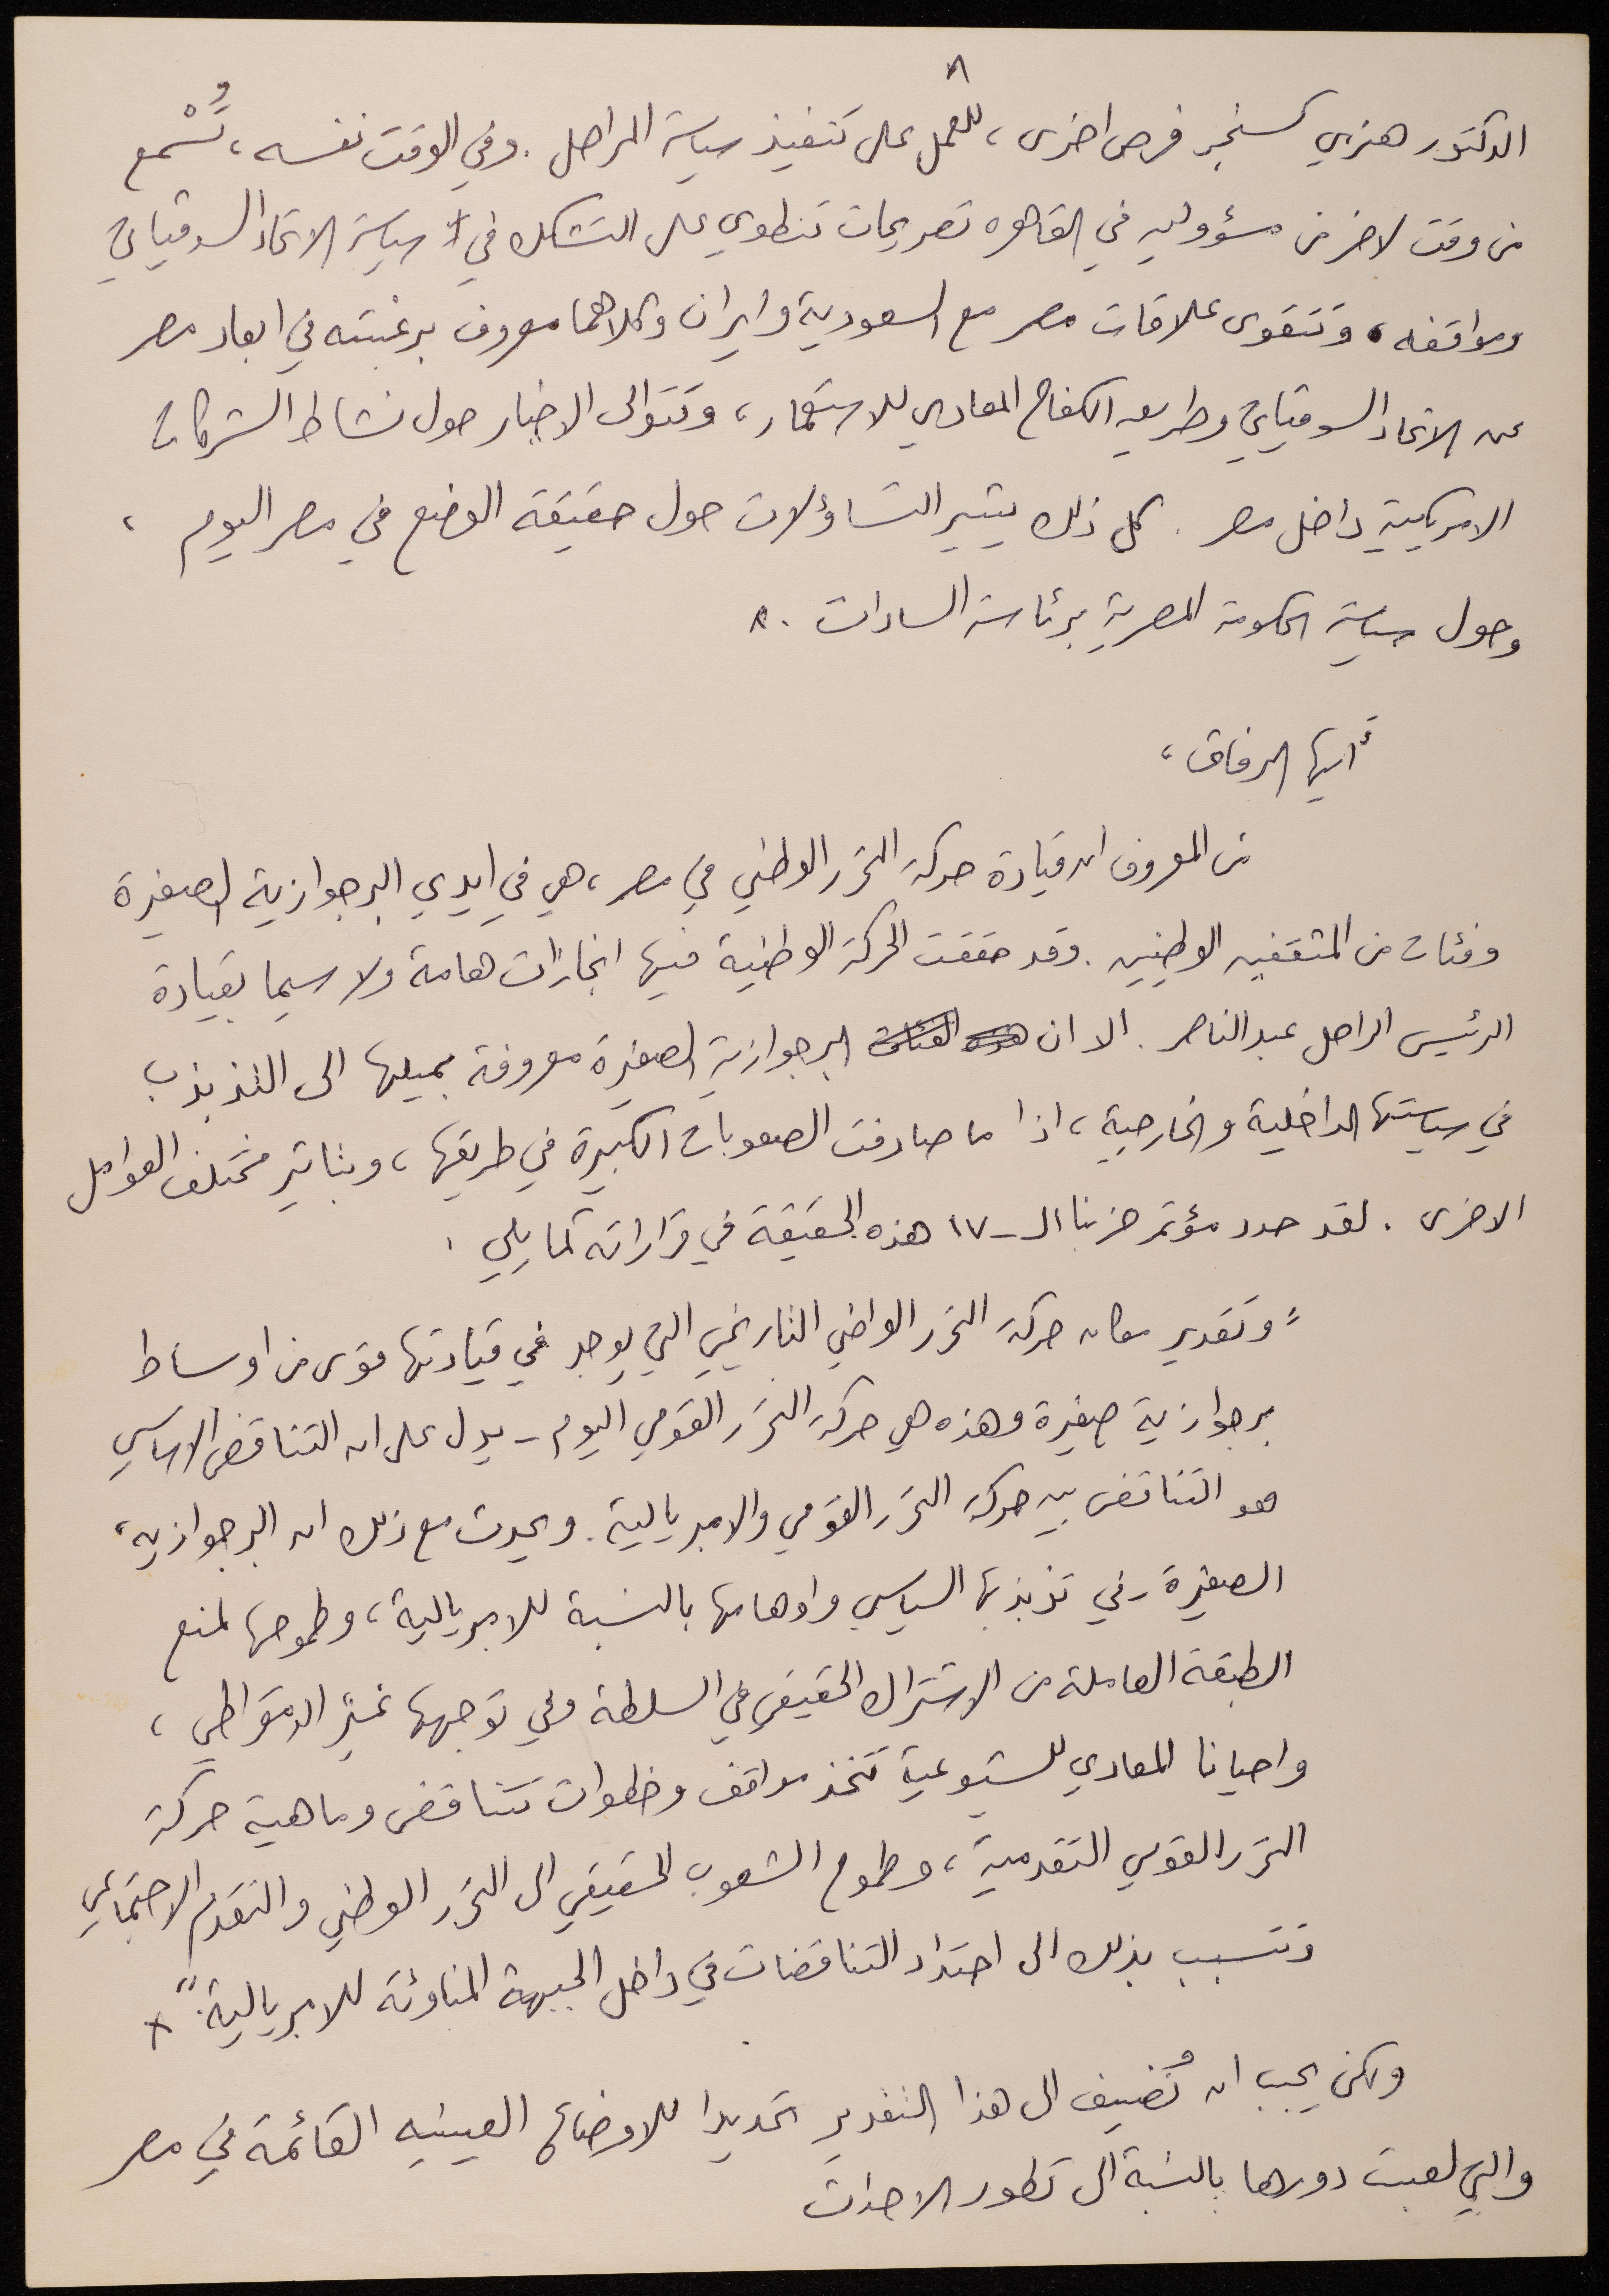 ٨
الدكتور هنري كسنجر فرص اخرى، للعمل على تنفيذ سياسة المراحل. وفي الوقت نفسه، تُسْمع
من وقت لاخر من مسؤولين في القاهره تصريحات تنطوي على التشكك في سياسة الاتحاد السوڤياتي
ومواقفه، وتتقوى علاقات مصر مع السعودية وايران وكلاهما معروف برغبته في ابعاد مصر
عن الاتحاد السوڤياتي وطريق الكفاح المعادي للاستعمار، وتتوالى الاخبار حول نشاط الشركات
الامريكية داخل مصر. كل ذلك يثير التساؤلات حول حقيقة الوضع في مصر اليوم،
وحول سياسة الحكومة المصرية برئاسة السادات.
أيها الرفاق،
من المعروف ان قيادة حركة التحرر الوطني في مصر، هي في ايدي البرجوازية الصغيرة
وفئات من المثقفين الوطنيين. وقد حققت الحركة الوطنية فيها انجازات هامة ولا سيما بقيادة
الرئيس الراحل عبد الناصر. الا ان هذه الفئات البرجوازية الصغيرة معروفة بميلها الى التذبذب
في سياستها الداخلية والخارجية، اذا ما صادفت الصعوبات الكبيرة في طريقها، وبتاثير مختلف العوامل
الاخرى. لقد حدد مؤتمر حزبنا الـ-١٧ هذه الحقيقة في قراراته كما يلي:
"وتقدير مكان حركة التحرر الوطني التاريخي التي يوجد في قيادتها قوى من اوساط
برجوازية صغيرة وهذه هي حركة التحرر القومي اليوم - يدل على ان التناقض الاساسي
هو التناقض بين حركة التحرر القومي والامبريالية. ويحدث مع ذلك ان البرجوازية،
الصغيرة - في تذبذبها السياسي واوهامها بالنسبة للامبريالية، وطموحها لمنع
الطبقة العاملة من الاشتراك الحقيقي في السلطة وفي توجهها غير الدمقراطي،
واحيانا المعادي للشيوعية تتخذ مواقف وخطوات تتناقض وماهية حركة
التحرر القومي التقدمية، وطموح الشعوب الحقيقي الى التحرر الوطني والتقدم الاجتماعي
وتتسبب بذلك الى احتداد التناقضات في داخل الجبهة المناوئة للامبريالية." x
ولكن يجب ان نُضيف الى هذا التقدير تحديدا للاوضاع العينيه القائمة في مصر
والتي لعبت دورها بالنسبة الى تطور الاحداث